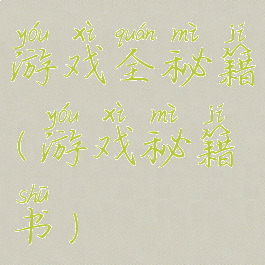 yóu xì quán mì jí
游戏全秘籍
yóu xì mì jí
(游戏秘籍
shū
书)